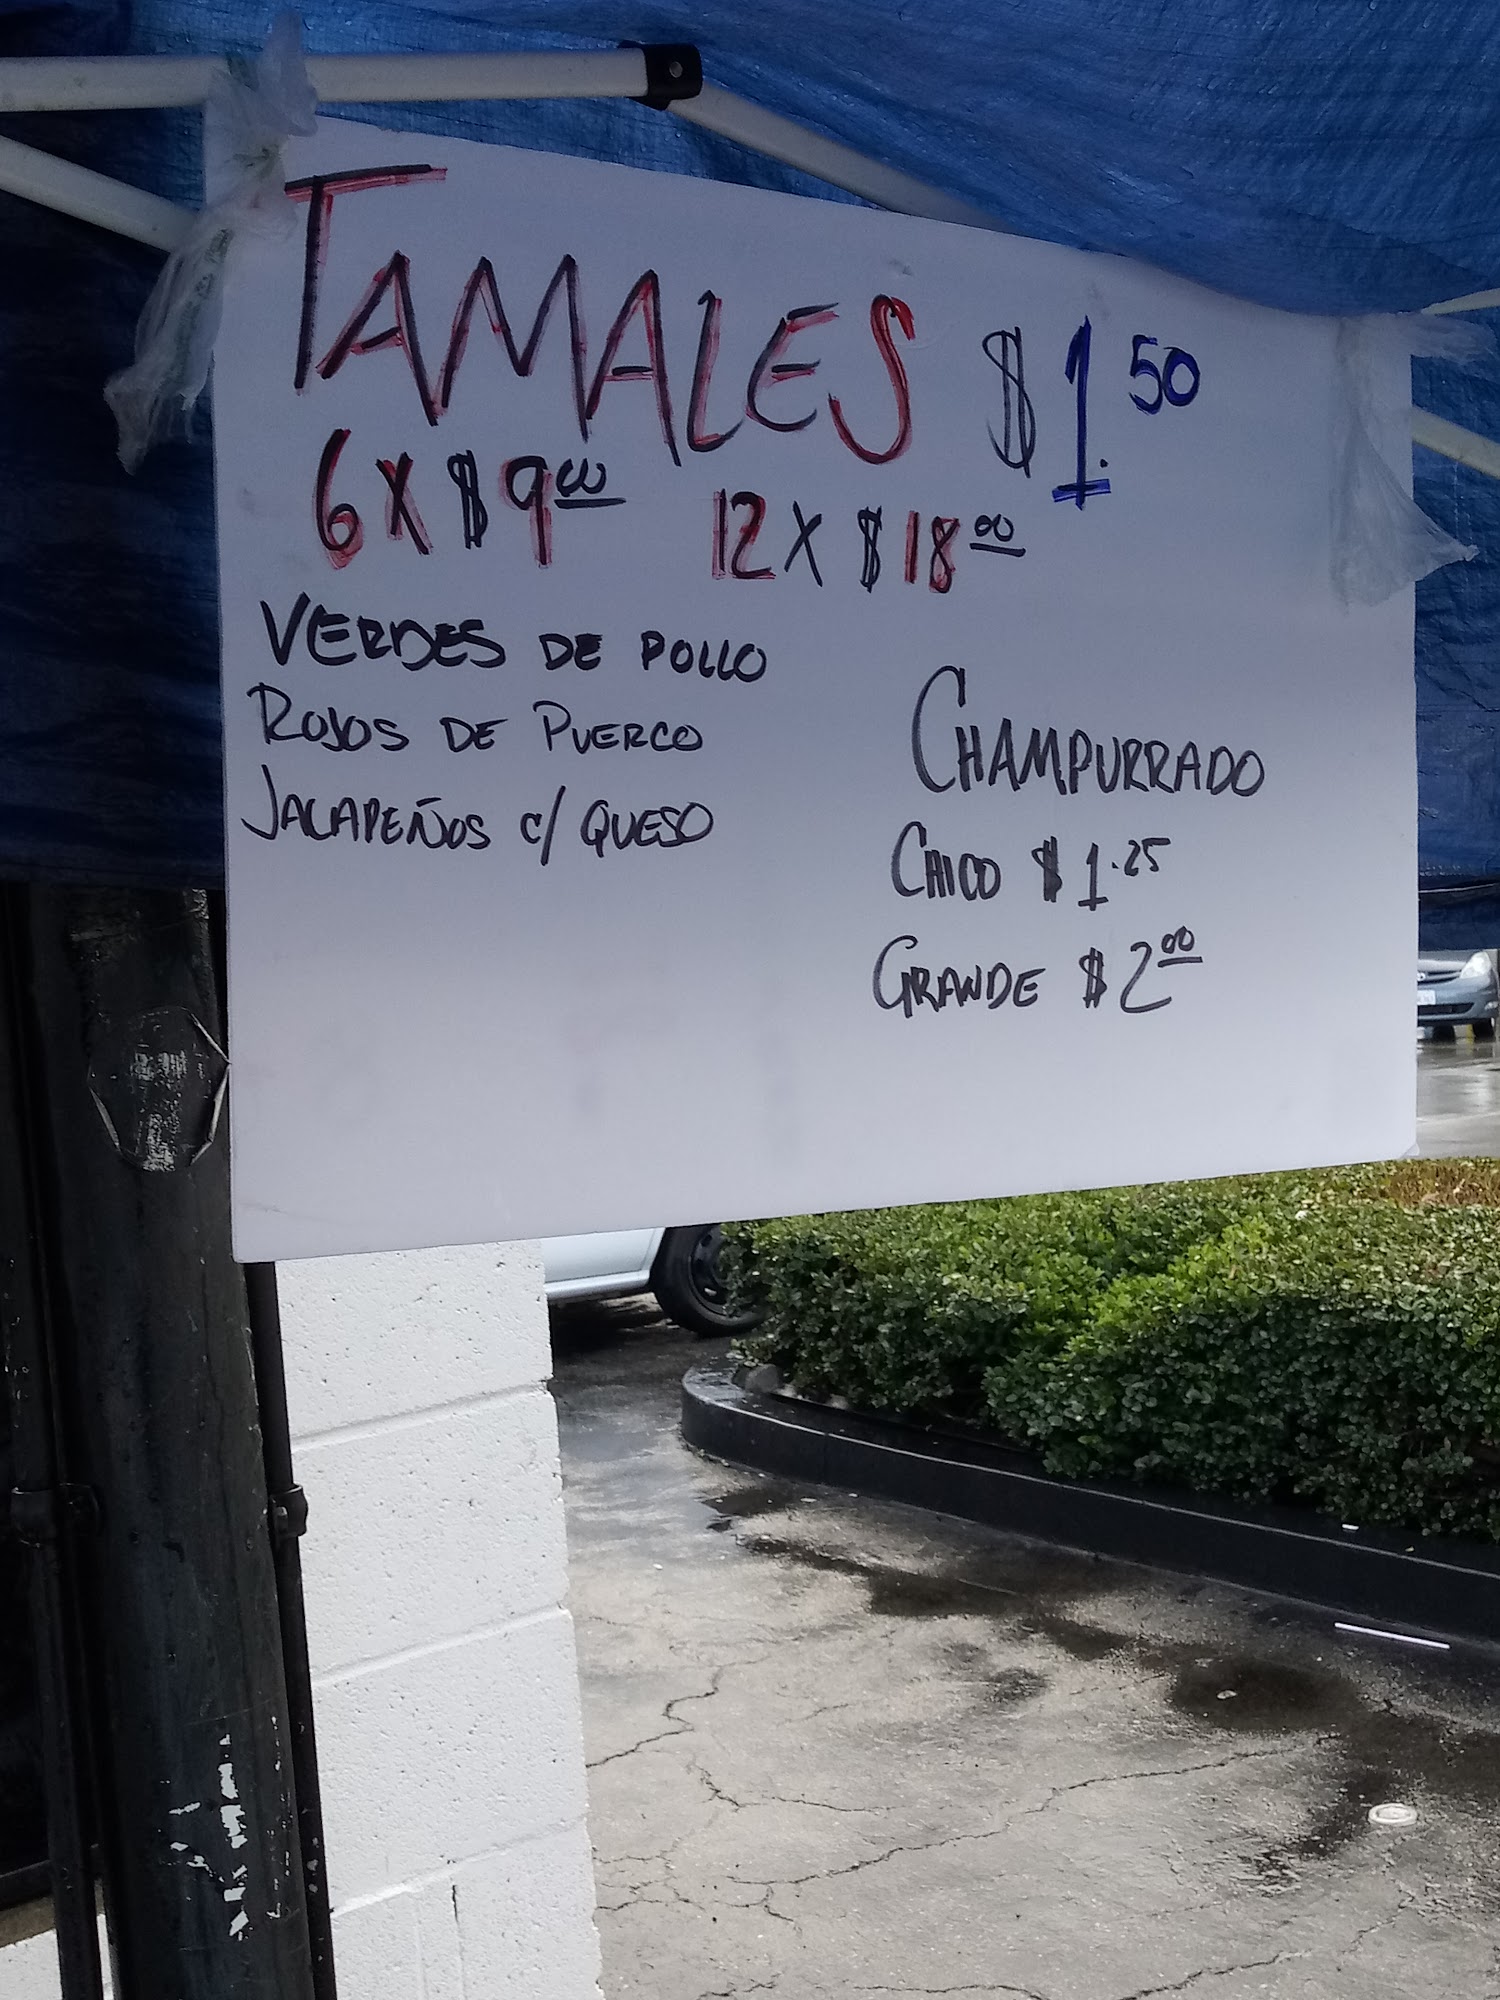 TAMALES $1.50
6 X $9.00 12 X $18.00
VERDES DE POLLO
ROJOS DE PUERCO
JALAPEÑOS C/ QUESO
CHAMPURRADO
CHICO $1.25
GRANDE $2.00